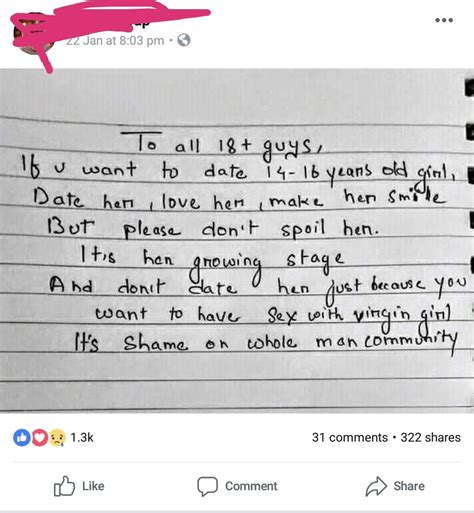 22 Jan at 8:03 pm
To all 18+ guys,
If u want to date 14-16 years old girl,
Date her, love her, make her smile
But please don't spoil her.
It is her growing stage
And don't date her just because you
want to have sex with virgin girl
It's Shame on whole man community
1.3k 31 comments • 322 shares
Like Comment Share